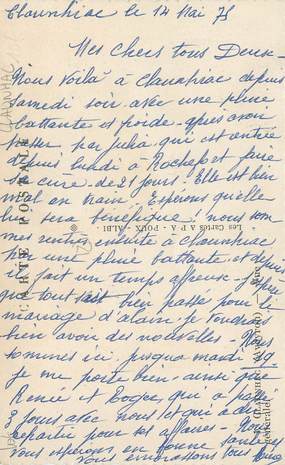 Claunhiac le 14 Mai 75
Mes Chers tous Deux -
Nous voilà à Claunhiac depuis
Samedi soir avec une pluie
battante et froide - après avoir
passer par Julia qui est entrée
depuis lundi à Rochefort faire
sa cure de 21 jours. Elle est bien
mal en train. Espérons qu'elle
lui sera bénéfique! nous som-
mes rentrés ensuite à Claunhiac
par une pluie battante et depuis
il fait un temps affreux
que tout s'est bien passé pour le
mariage d'alain. je voudrais
bien avoir des nouvelles - Nous
sommes ici jusqu'a mardi 19
je me porte bien ainsi que
Renée et Roger qui a passé
3 jours avec nous et qui a du
repartir pour ses affaires - Nous
vous espérons en bonne santé
vous embrassons tous
CARTE POSTALE
Les Cartes A P A - POUX - ALBI
CLAUNHAC